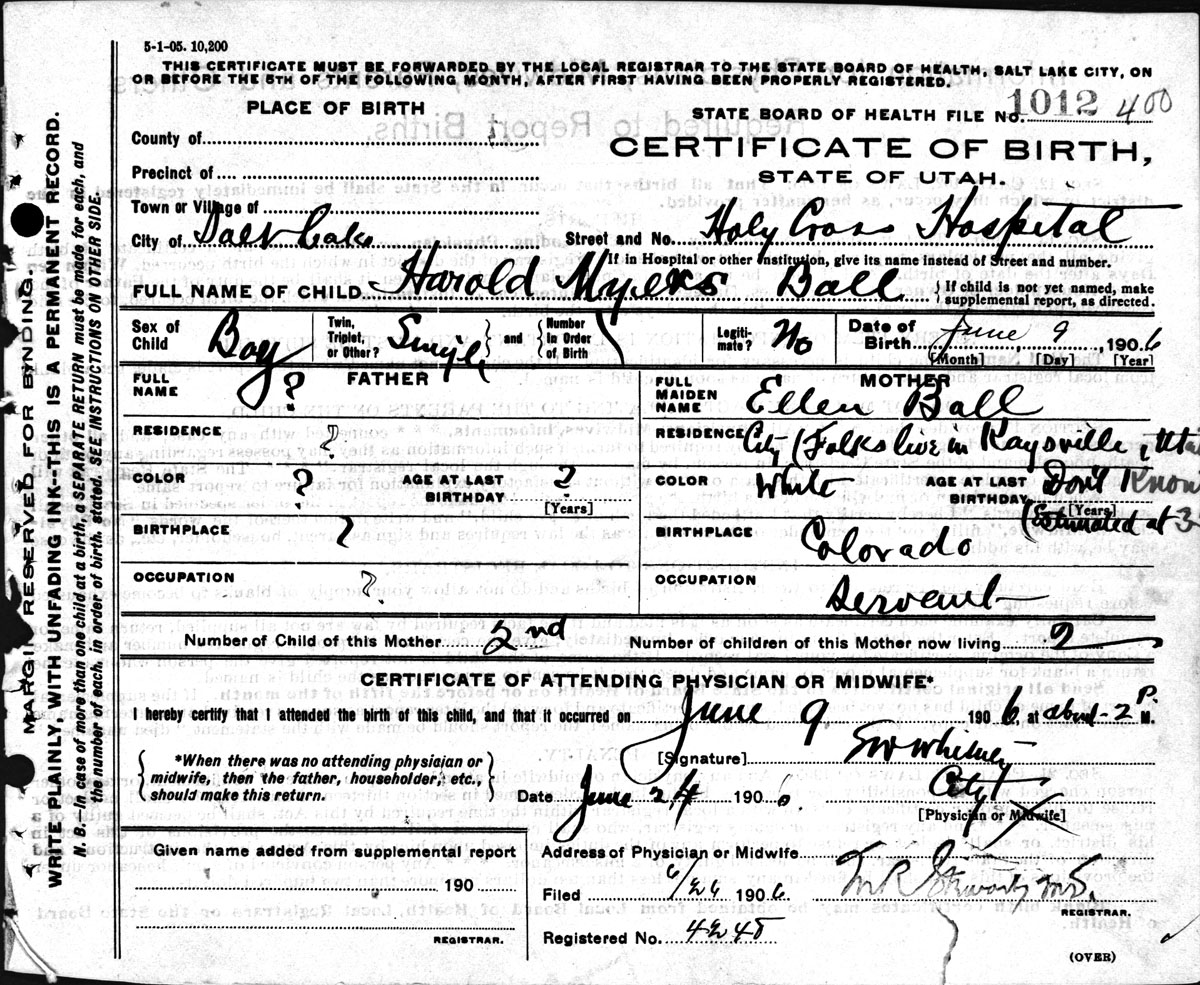 5-1-05. 10,200
THIS CERTIFICATE MUST BE FORWARDED BY THE LOCAL REGISTRAR TO THE STATE BOARD OF HEALTH, SALT LAKE CITY, ON
OR BEFORE THE 5TH OF THE FOLLOWING MONTH, AFTER FIRST HAVING BEEN PROPERLY REGISTERED.
MARGIN RESERVED FOR BINDING.
WRITE PLAINLY WITH UNFADING INK-THIS IS A PERMANENT RECORD.
N. B.-In case of more than one child at a birth, a SEPARATE RETURN must be made for each, and
the number of each, in order of birth, stated. SEE INSTRUCTIONS ON OTHER SIDE.
PLACE OF BIRTH
County of
Precinct of
Town or Village of
City of Salt Lake
STATE BOARD OF HEALTH FILE NO. 1012 400
CERTIFICATE OF BIRTH,
STATE OF UTAH.
Street and No. Holy Cross Hospital
If in Hospital or other institution, give its name instead of Street and number.
FULL NAME OF CHILD Harold Myers Ball {If child is not yet named, make
supplemental report, as directed.
Sex of Child Boy
Twin, Triplet, or Other? Single } and { Number In Order of Birth
Legitimate? No
Date of Birth June 9, 1906
[Month] [Day] [Year]
FATHER
FULL NAME ?
RESIDENCE ?
COLOR ? AGE AT LAST BIRTHDAY ?
[Years]
BIRTHPLACE ?
OCCUPATION ?
MOTHER
FULL MAIDEN NAME Ellen Ball
RESIDENCE City (Folks live in Kaysville, Utah
COLOR White AGE AT LAST BIRTHDAY Don't Know
[Years]
(Estimated at 3
BIRTHPLACE Colorado
OCCUPATION Servent
Number of Child of this Mother 2nd Number of children of this Mother now living 2
CERTIFICATE OF ATTENDING PHYSICIAN OR MIDWIFE*
I hereby certify that I attended the birth of this child, and that it occurred on June 9 1906, at about 2 P. M.
{ *When there was no attending physician or
midwife, then the father, householder, etc.,
should make this return. }
[Signature] Whitney
Date June 24 190 City
[Physician or Midwife]
Given name added from supplemental report
190
REGISTRAR.
Address of Physician or Midwife
Filed 1906 M.D.
REGISTRAR.
Registered No.
(OVER)